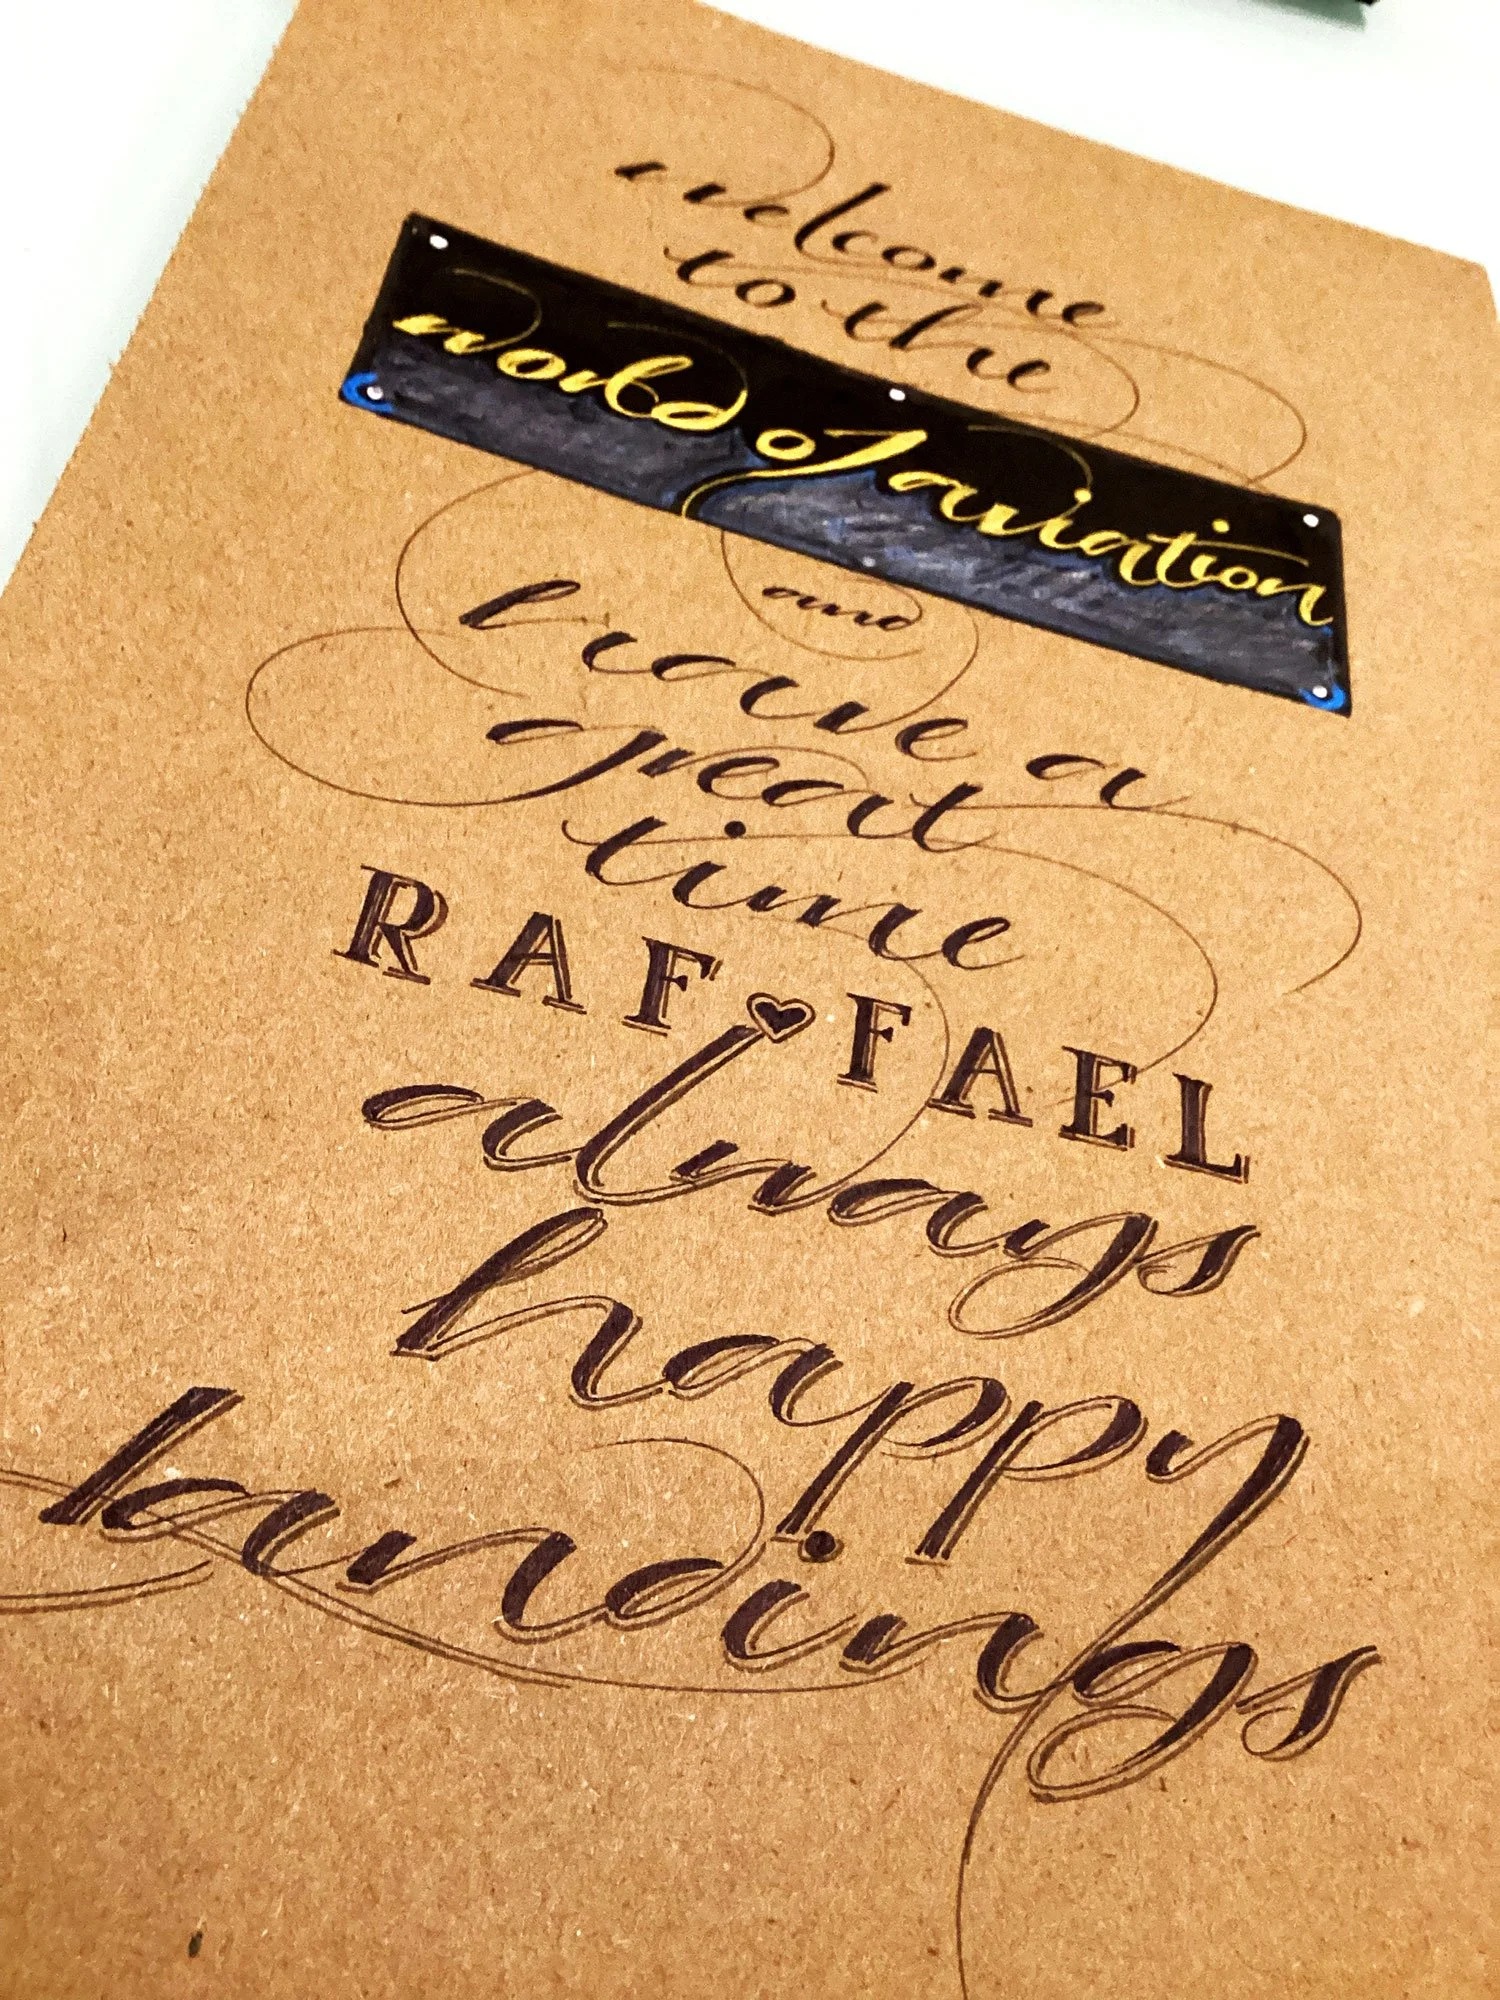 welcome
to the
world of aviation
and
have a
great
time
RAF♥FAEL
always
happy
landings